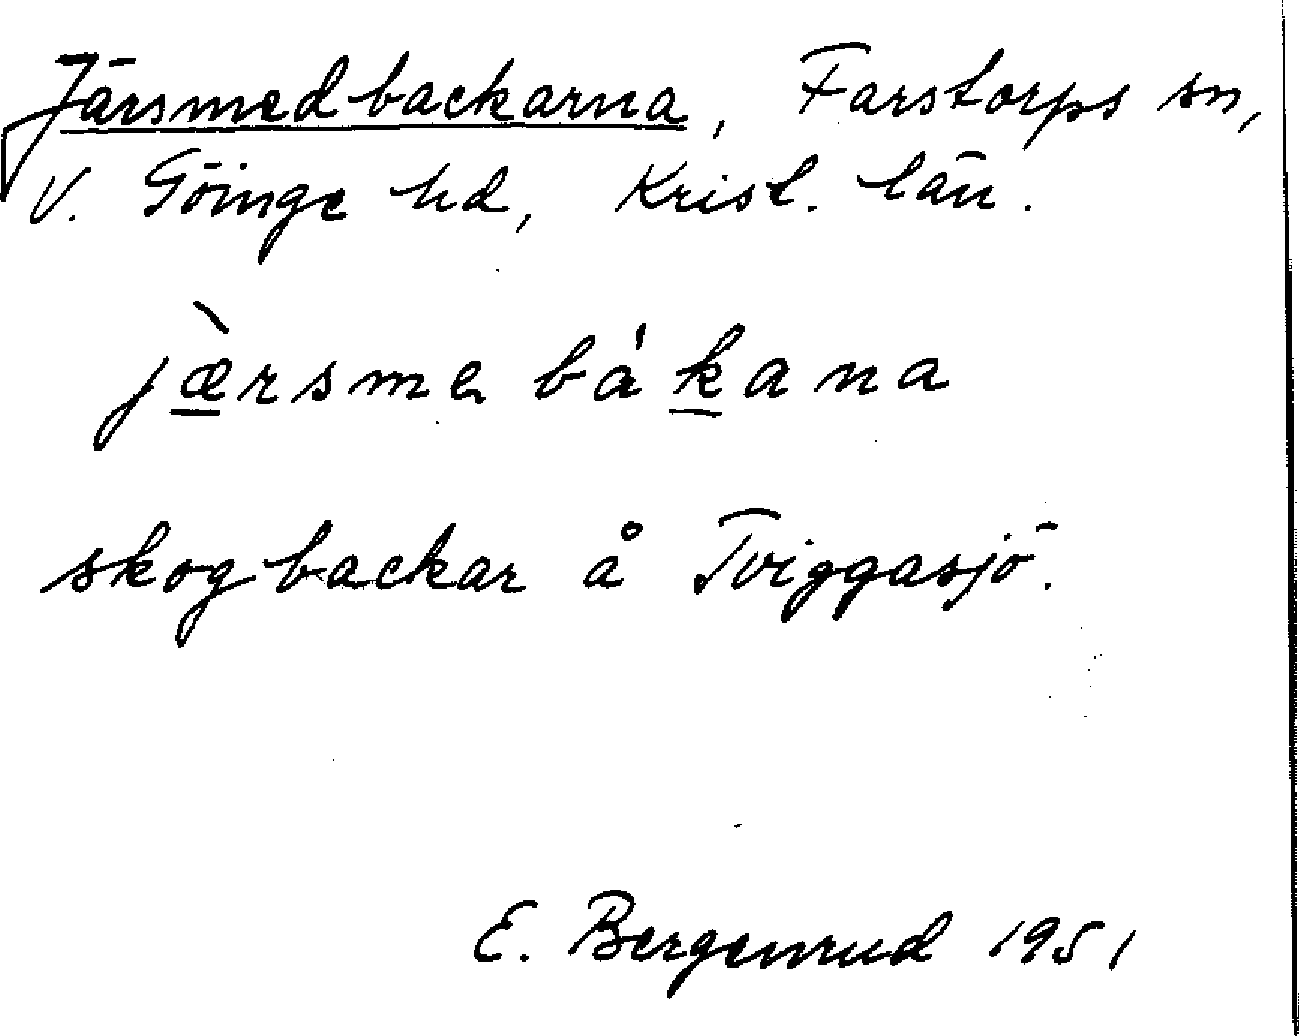 Järsmedbackarna, Farstorps sn,
V. Göinge hd, Krist. län.
jæ̀rsme bákana
skogbackar å Tviggasjö.
E. Bergenrud 1951